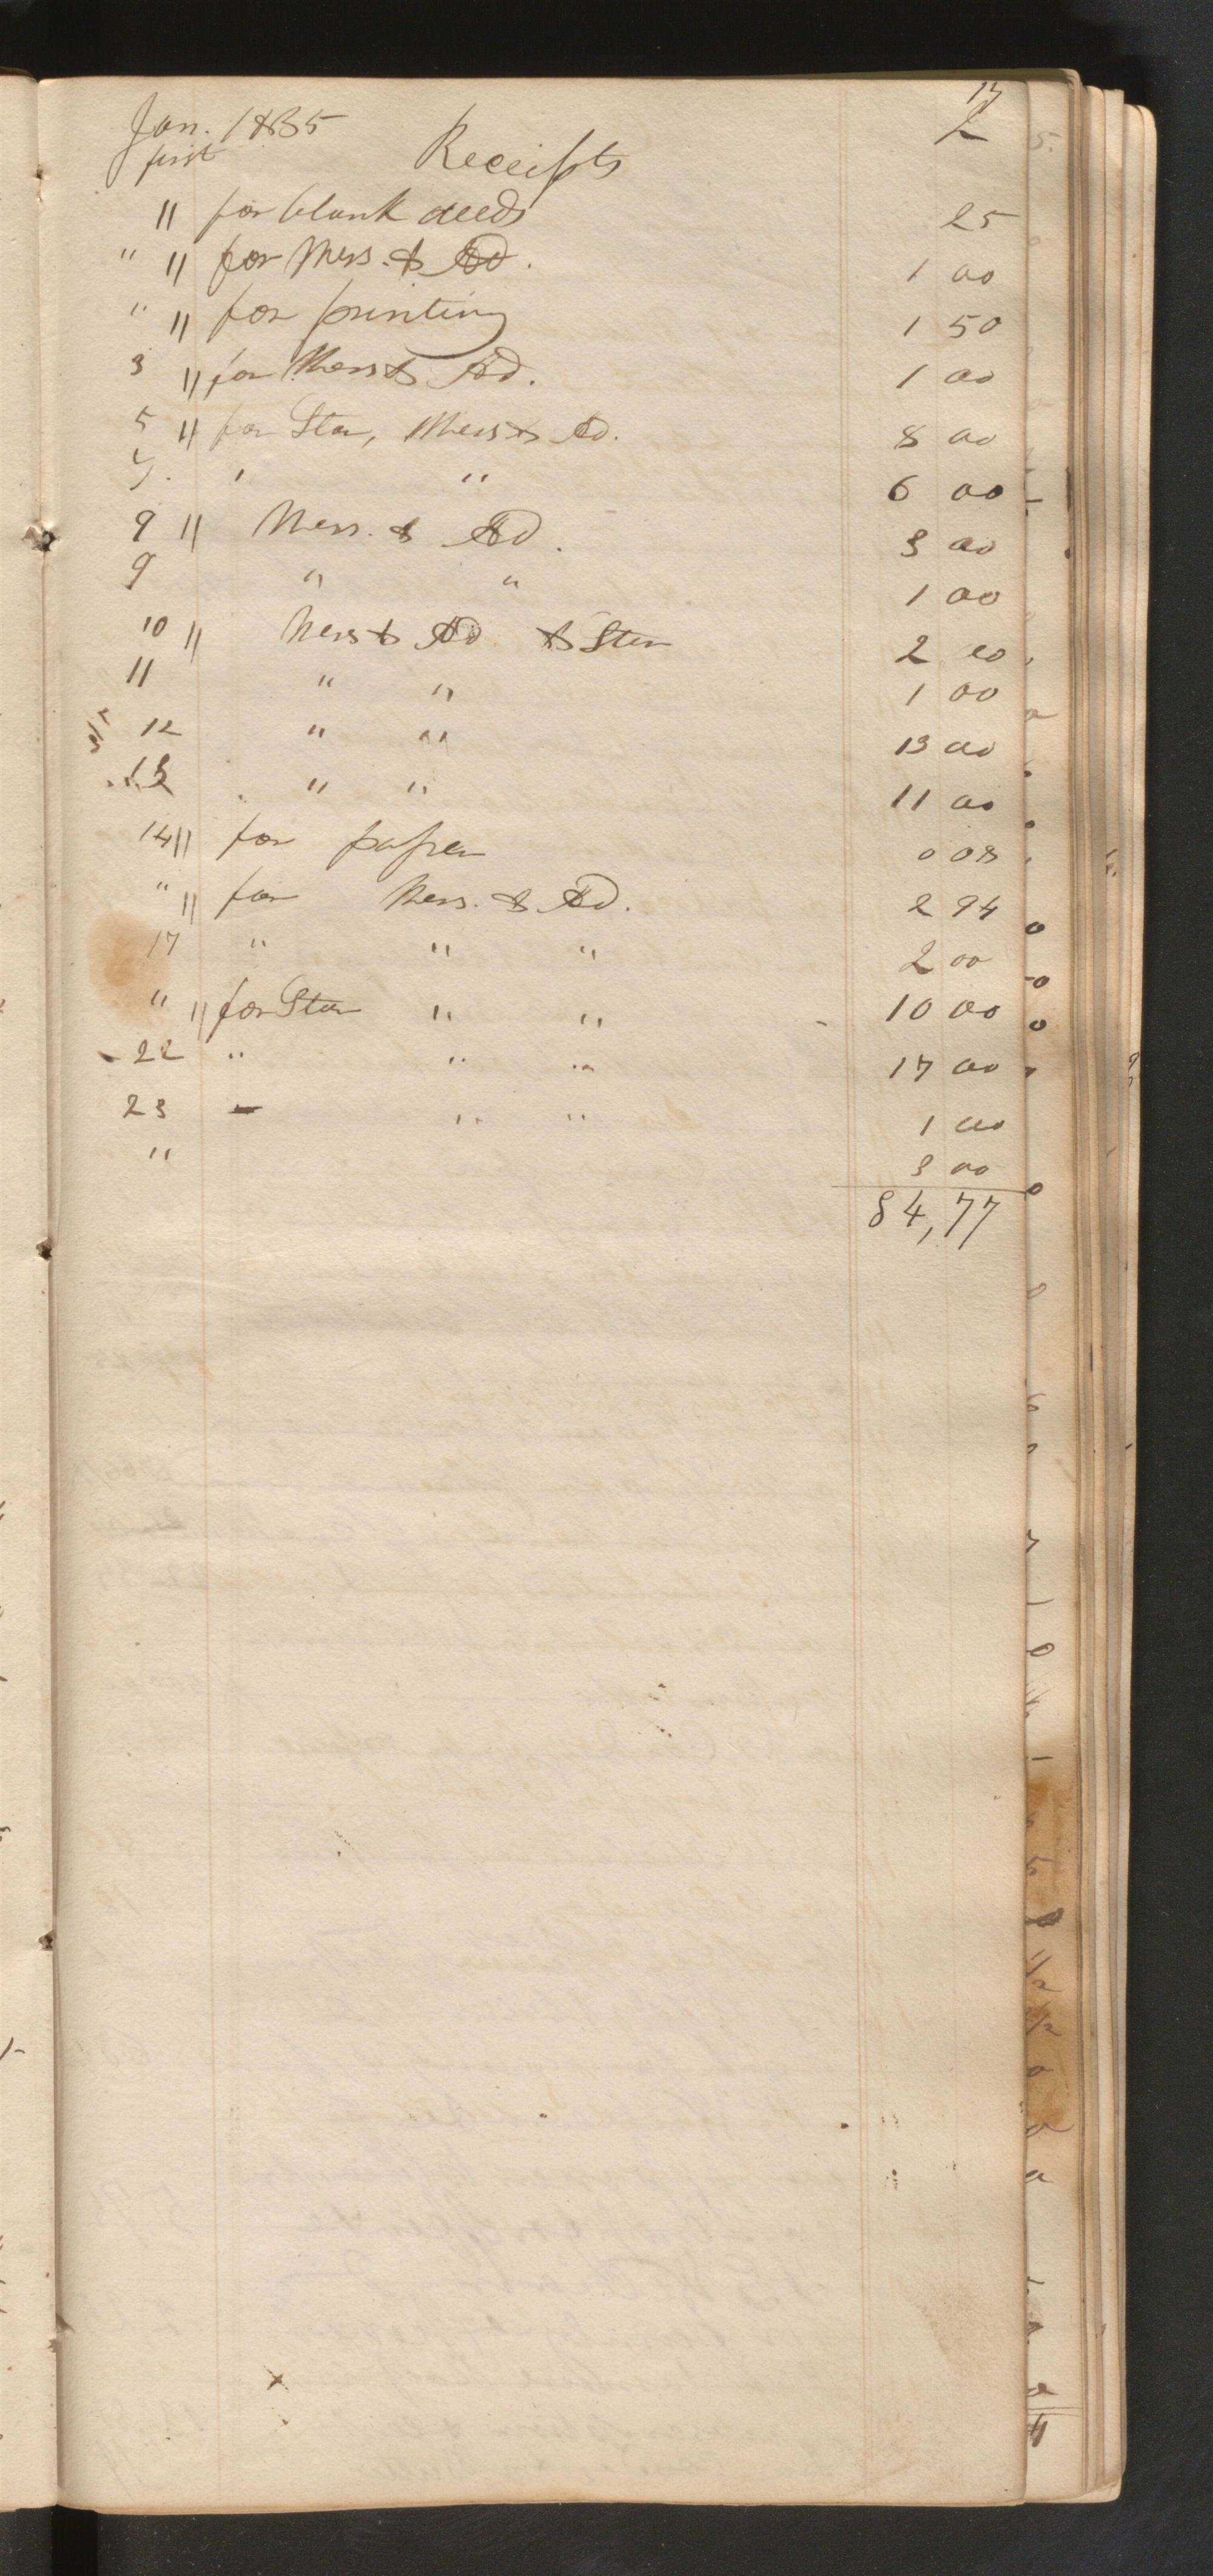 17
Jan. 1835 2
first Receipts
" for blank deeds 25
" " for Mess. & Ad. 1 00
" " for printing 1 50
3 " for Mess & Ad. 1 00
5 " for Star, Mess & Ad. 8 00
7. " " 6 00
9 " Mess. & Ad. 3 00
9 " " 1 00
10 " Mess & Ad & Star 2 00
11 " " 1 00
12 " " 13 00
13 " " 11 00
14 " for paper 0 08
" " for Mess. & Ad. 2 94
17 " " " 2 00
" " for Star " " 10 00
22 " " " 17 00
23 - " " 1 00
" 3 00
84,77